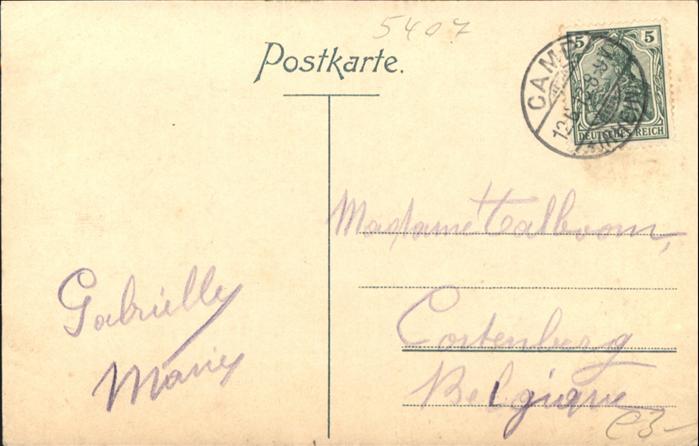 5407
Postkarte.
5 5
DEUTSCHES REICH
CAMP
12
Madame Talboom,
Costenberg
Belgique
Gabrielle
Marie